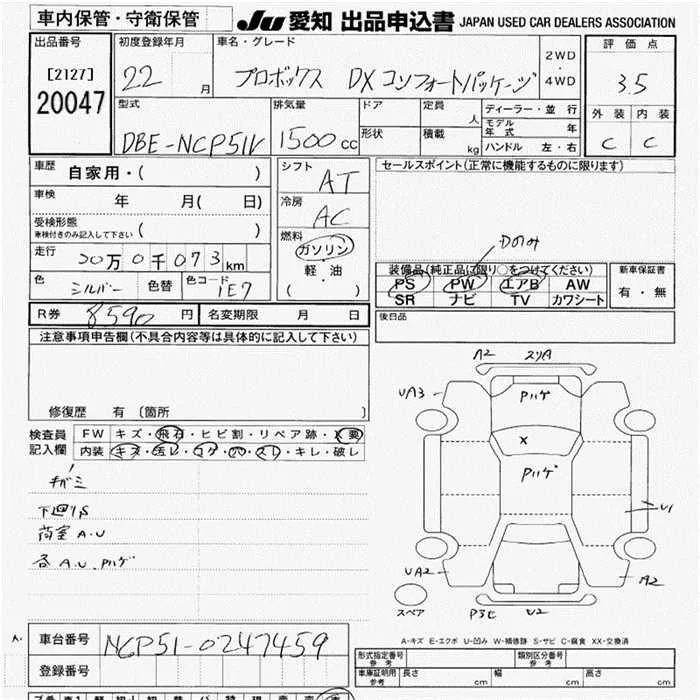 車内保管・守衛保管
JU 愛知 出品申込書 JAPAN USED CAR DEALERS ASSOCIATION
出品番号
[2127]
20047
初度登録年月
22 月
車名・グレード
プロボックス DXコンフォートパッケージ
2WD
・
4WD
評価点
3.5
外装 内装
C C
型式
DBE-NCP51V
排気量
1500 cc
ドア
形状
定員
人
積載
kg
ディーラー・並行
モデル年式 年
ハンドル 左・右
車歴 自家用・( )
車検 年 月( 日)
受検形態
車検付きのみ記入して下さい ( )
走行 20万0千073km
色 シルバー 色替 色コード 1E7
シフト AT
冷房 AC
燃料
ガソリン
・
軽・油
( )
セールスポイント(正常に機能するものに限ります)
Dのみ
装備品(純正品に限り○をつけてください)
PS PW エアB AW
SR ナビ TV カワシート
新車保証書
有・無
R券 8590 円 名変期限 月 日
後日品
注意事項申告欄(不具合内容等は具体的に記入して下さい)
修復歴 有 〔箇所 〕
検査員
記入欄
FW キズ・飛石・ヒビ割・リペア跡・X要
内装 キズ・汚レ・コゲ・穴・スレ・キレ・破レ
キバミ
下廻りS
荷室 A.U
各 A.U.Pハゲ
A2 スリA
UA3
Pハゲ
X
Pハゲ
U1
UA2
A2
スペア
U2
A-キズ E-エクボ U-凹み W-補修跡 S-サビ C-腐食 XX-交換済
車台番号 NCP51-0247459
登録番号
形式指定番号
参考
類別区分番号
参考
車庫証明用
参考
長さ cm 幅 cm 高さ cm